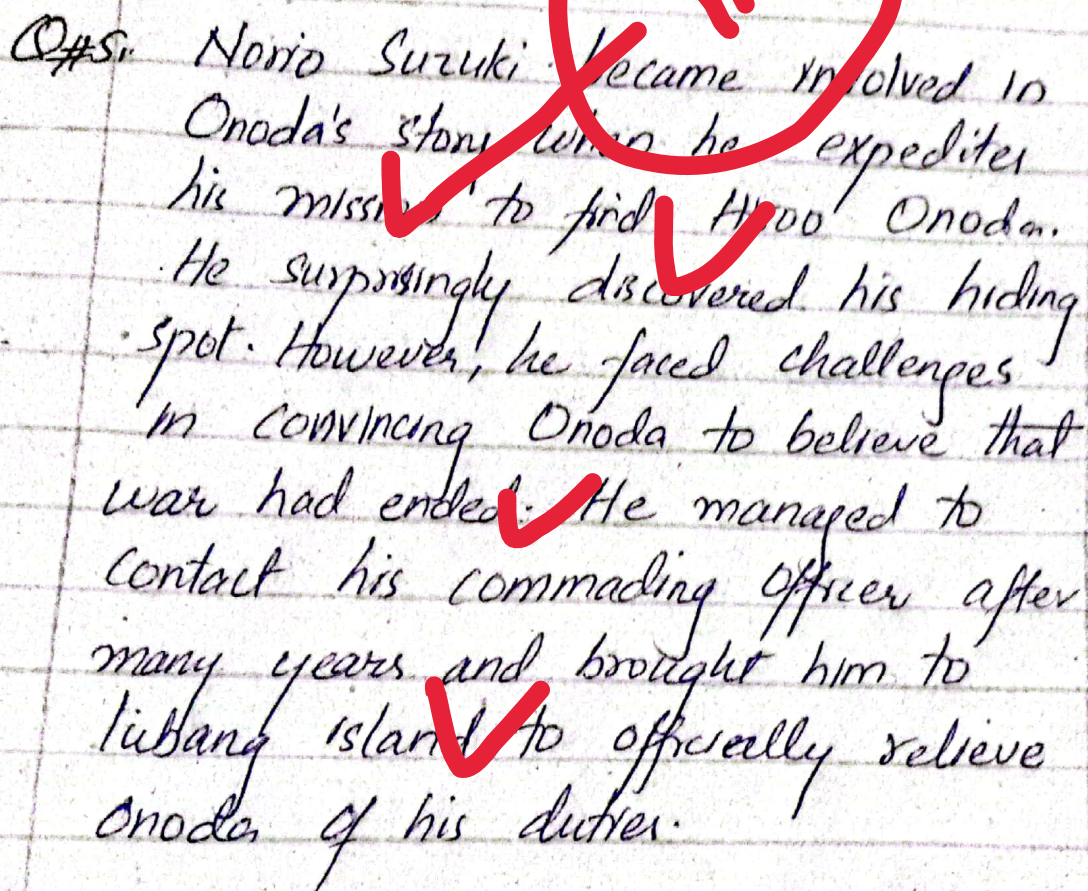 Q#5: Norio Suzuki became involved in
Onoda's story when he expedites
his mission to find Hiroo Onoda.
He surprisingly discovered his hiding
spot. However, he faced challenges
in convincing Onoda to believe that
war had ended. He managed to
contact his commading officer after
many years and brought him to
lubang island to officially relieve
Onoda of his duties.